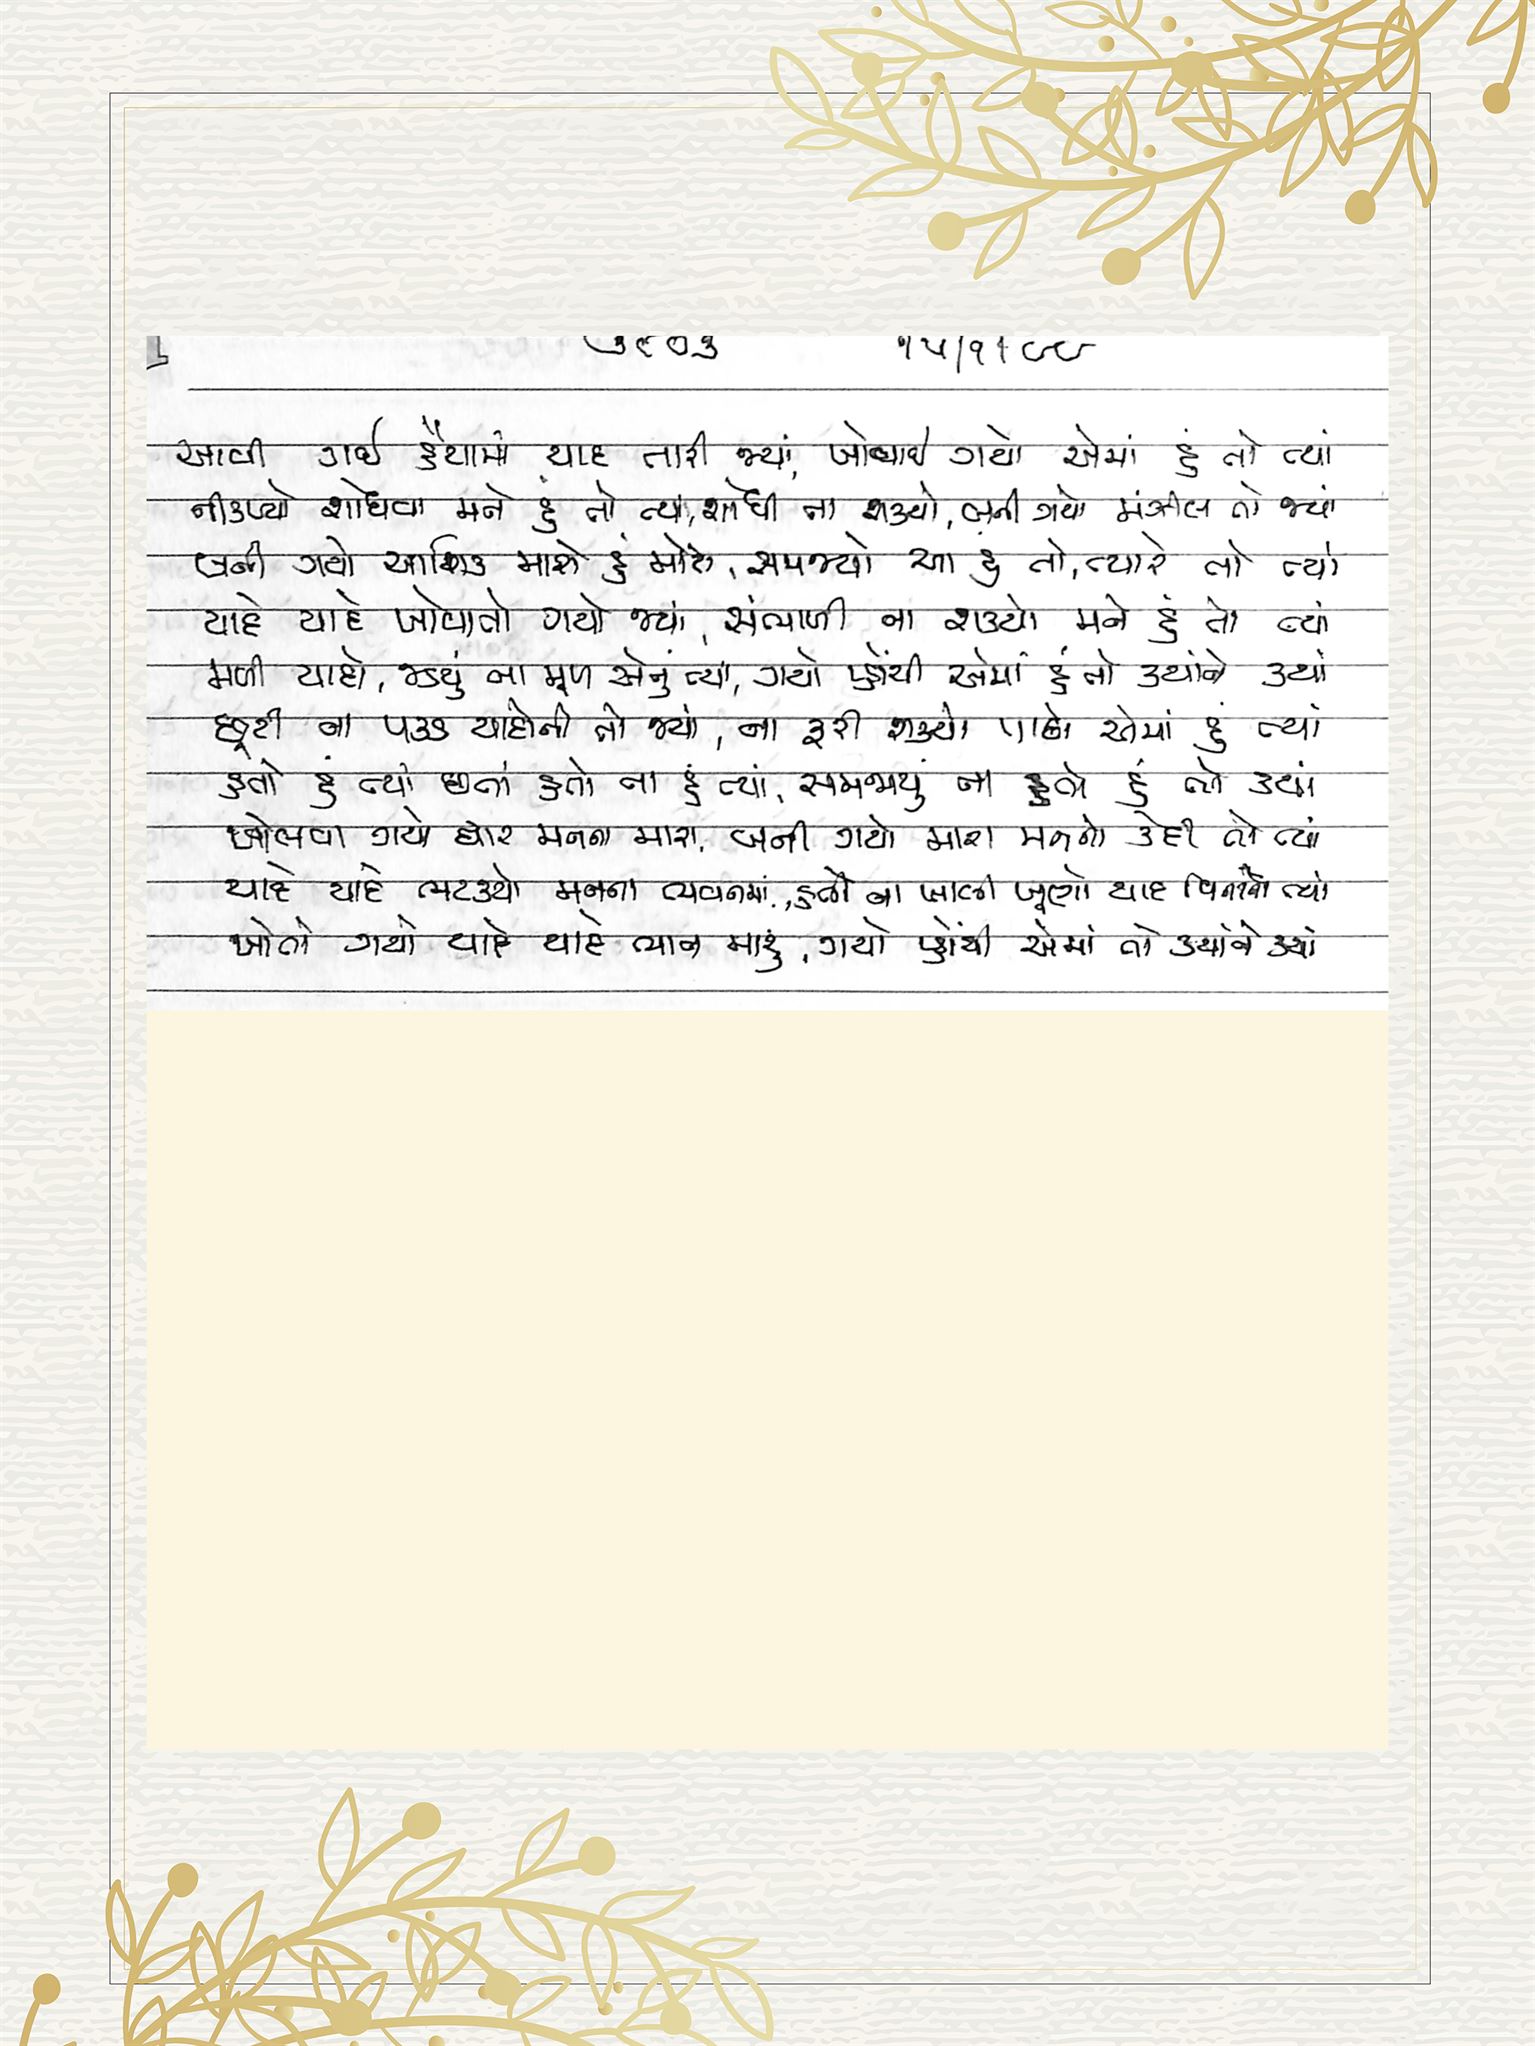 આવી ગઈ હૈયામાં યાદ તારી જ્યાં, ખોવાઈ ગયો એમાં હું તો ત્યાં
નીકળ્યો શોધવા મને હું તો ત્યાં, શોધી ના શક્યો, બની ગયો મંઝીલ તો જ્યાં
બની ગયો આશિક મારો હું મોટો, સમજ્યો આ હું તો, ત્યારે તો ત્યાં
યાદે યાદે ખોવાતો ગયો જ્યાં, સંભાળી ના શક્યો મને હું તો ત્યાં
મળી યાદો, જડયું ના મૂળ એનું ત્યાં, ગયો પહોંચી એમાં હું તો ક્યાંને ક્યાં
છૂટી ના પકડ યાદોની તો જ્યાં, ના ફરી શક્યો પાછો એમાં હું ત્યાં
હતો હું ત્યાં છતાં હતો ના હું ત્યાં, સમજાયું ના હતો હું તો ક્યાં
ખોલવા ગયો દ્વાર મનના મારા, બની ગયો મારા મનનો કેદી તો ત્યાં
યાદે યાદે ભટક્યો મનના ભવનમાં, હતી ના ખાલી ખૂણો યાદ વિનાનો ત્યાં
ખોતો ગયો યાદે યાદે ભાન મારું, ગયો પહોંચી એમાં તો ક્યાંને ક્યાં